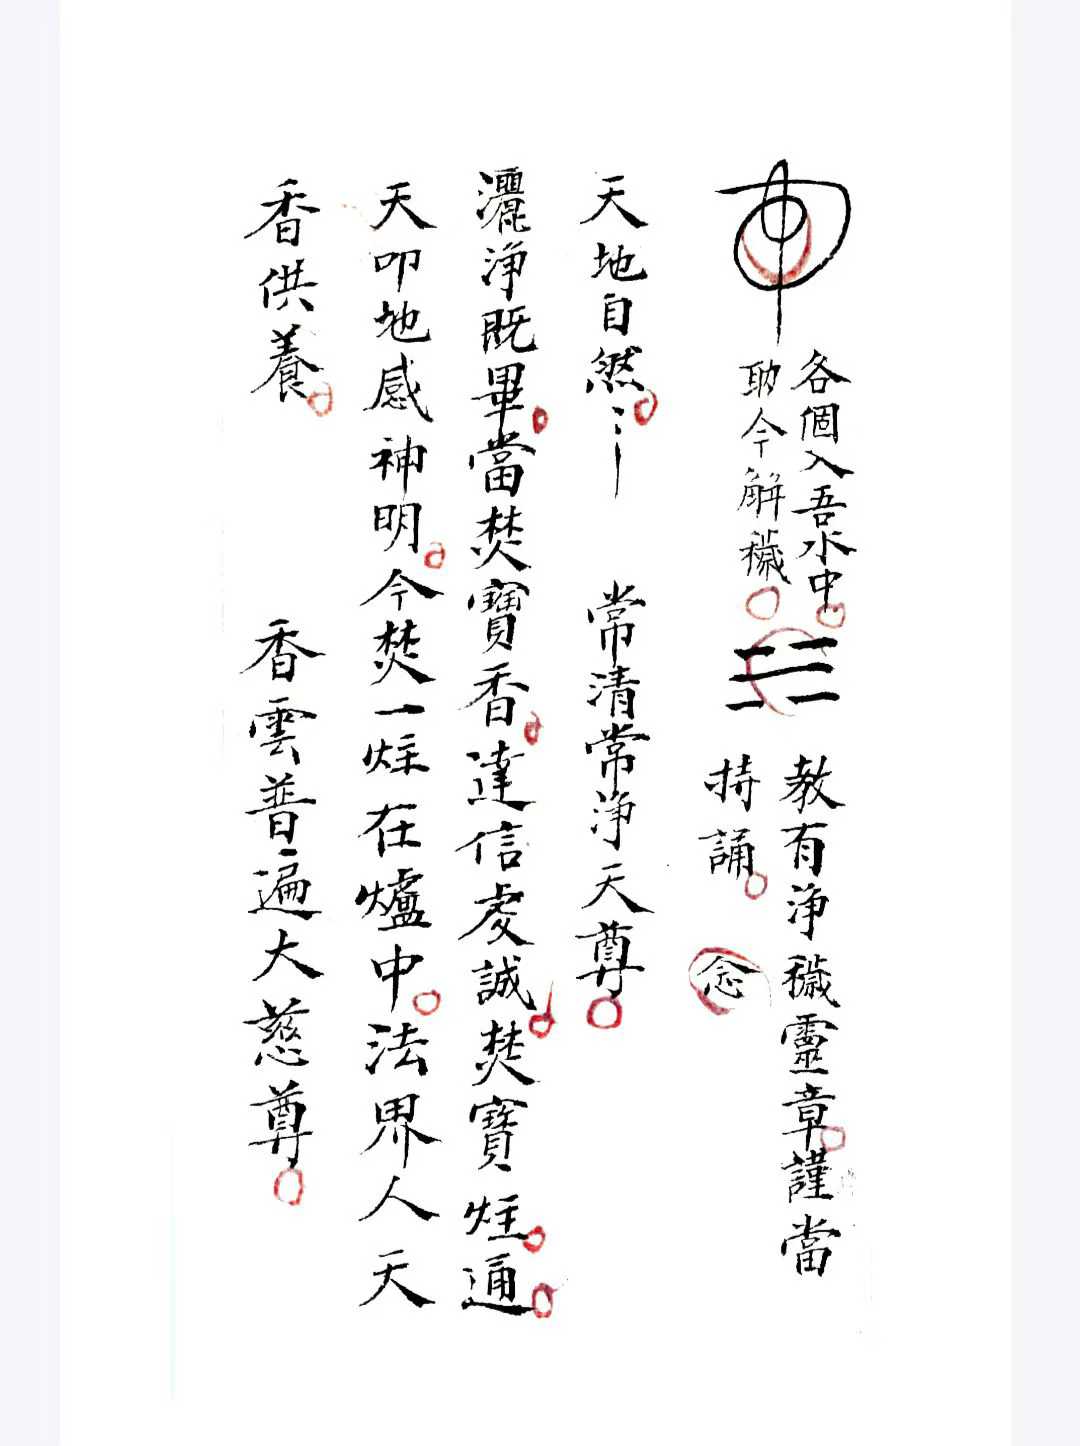 各個入吾水中
助今解穢
教有淨穢靈章謹當
持誦
念
天地自然 常清常淨天尊
灑淨既畢當焚寶香達信虔誠焚寶炷通
天叩地感神明今焚一炷在爐中法界人天
香供養 香雲普遍大慈尊